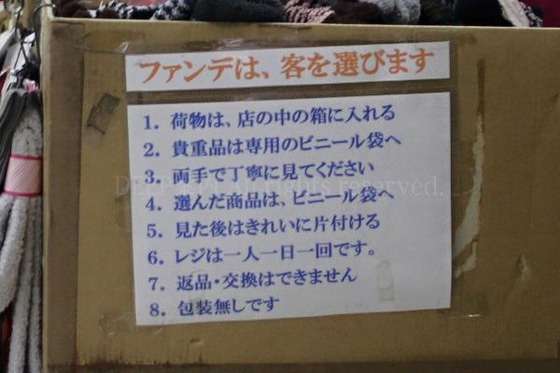 ファンテは、客を選びます
1. 荷物は、店の中の箱に入れる
2. 貴重品は専用のビニール袋へ
3. 両手で丁寧に見てください
4. 選んだ商品は、ビニール袋へ
5. 見た後はきれいに片付ける
6. レジは一人一日一回です。
7. 返品・交換はできません
8. 包装無しです
rights reserved.